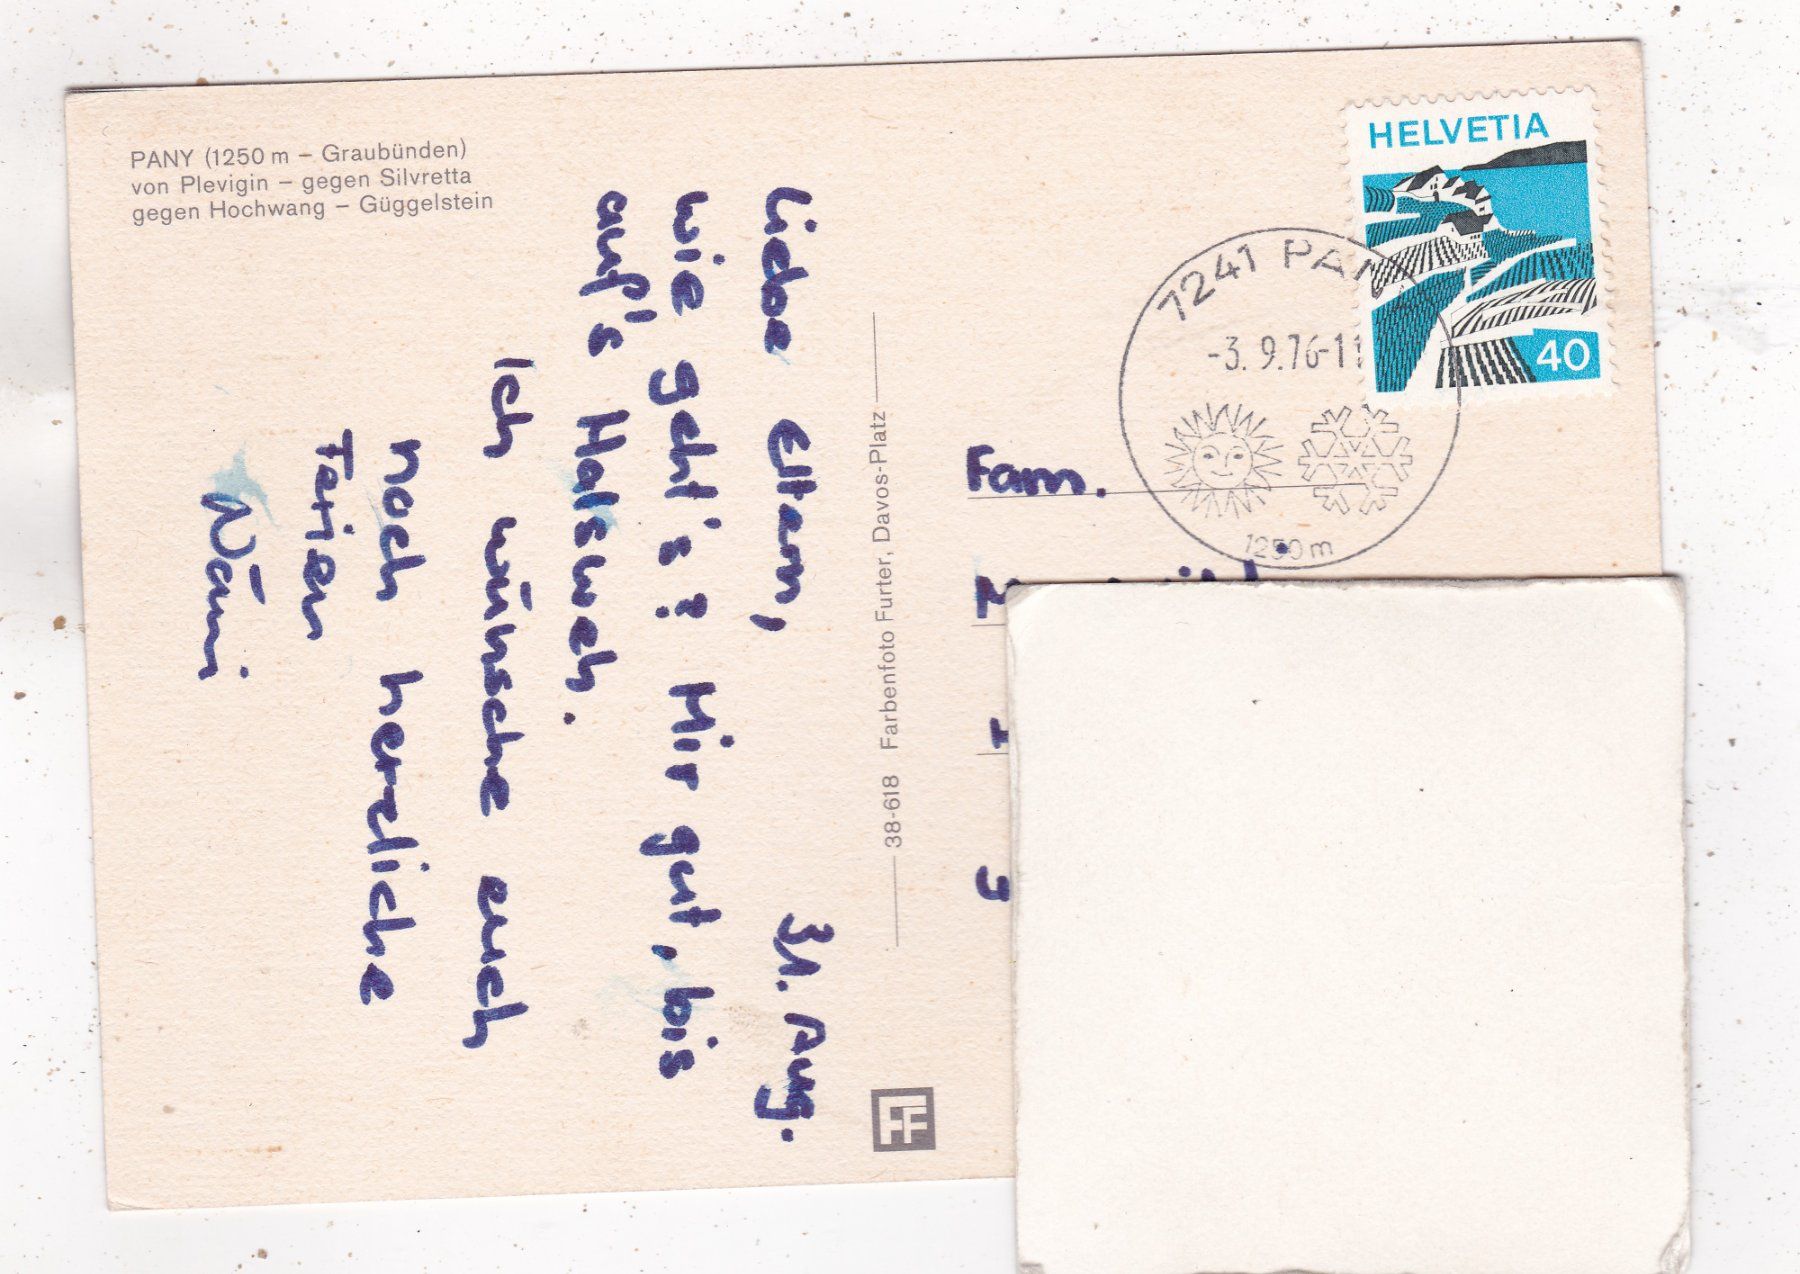 PANY (1250 m – Graubünden)
von Plevigin – gegen Silvretta
gegen Hochwang – Güggelstein
31. Aug.
Liebe Eltern,
wie geht's? Mir gut, bis
auf's Halsweh.
Ich wünsche euch
noch herzliche
Ferien
38-618 Farbenfoto Furter, Davos-Platz
FF
HELVETIA
40
7241 PANY
-3.9.76-11
1250 m
Fam.